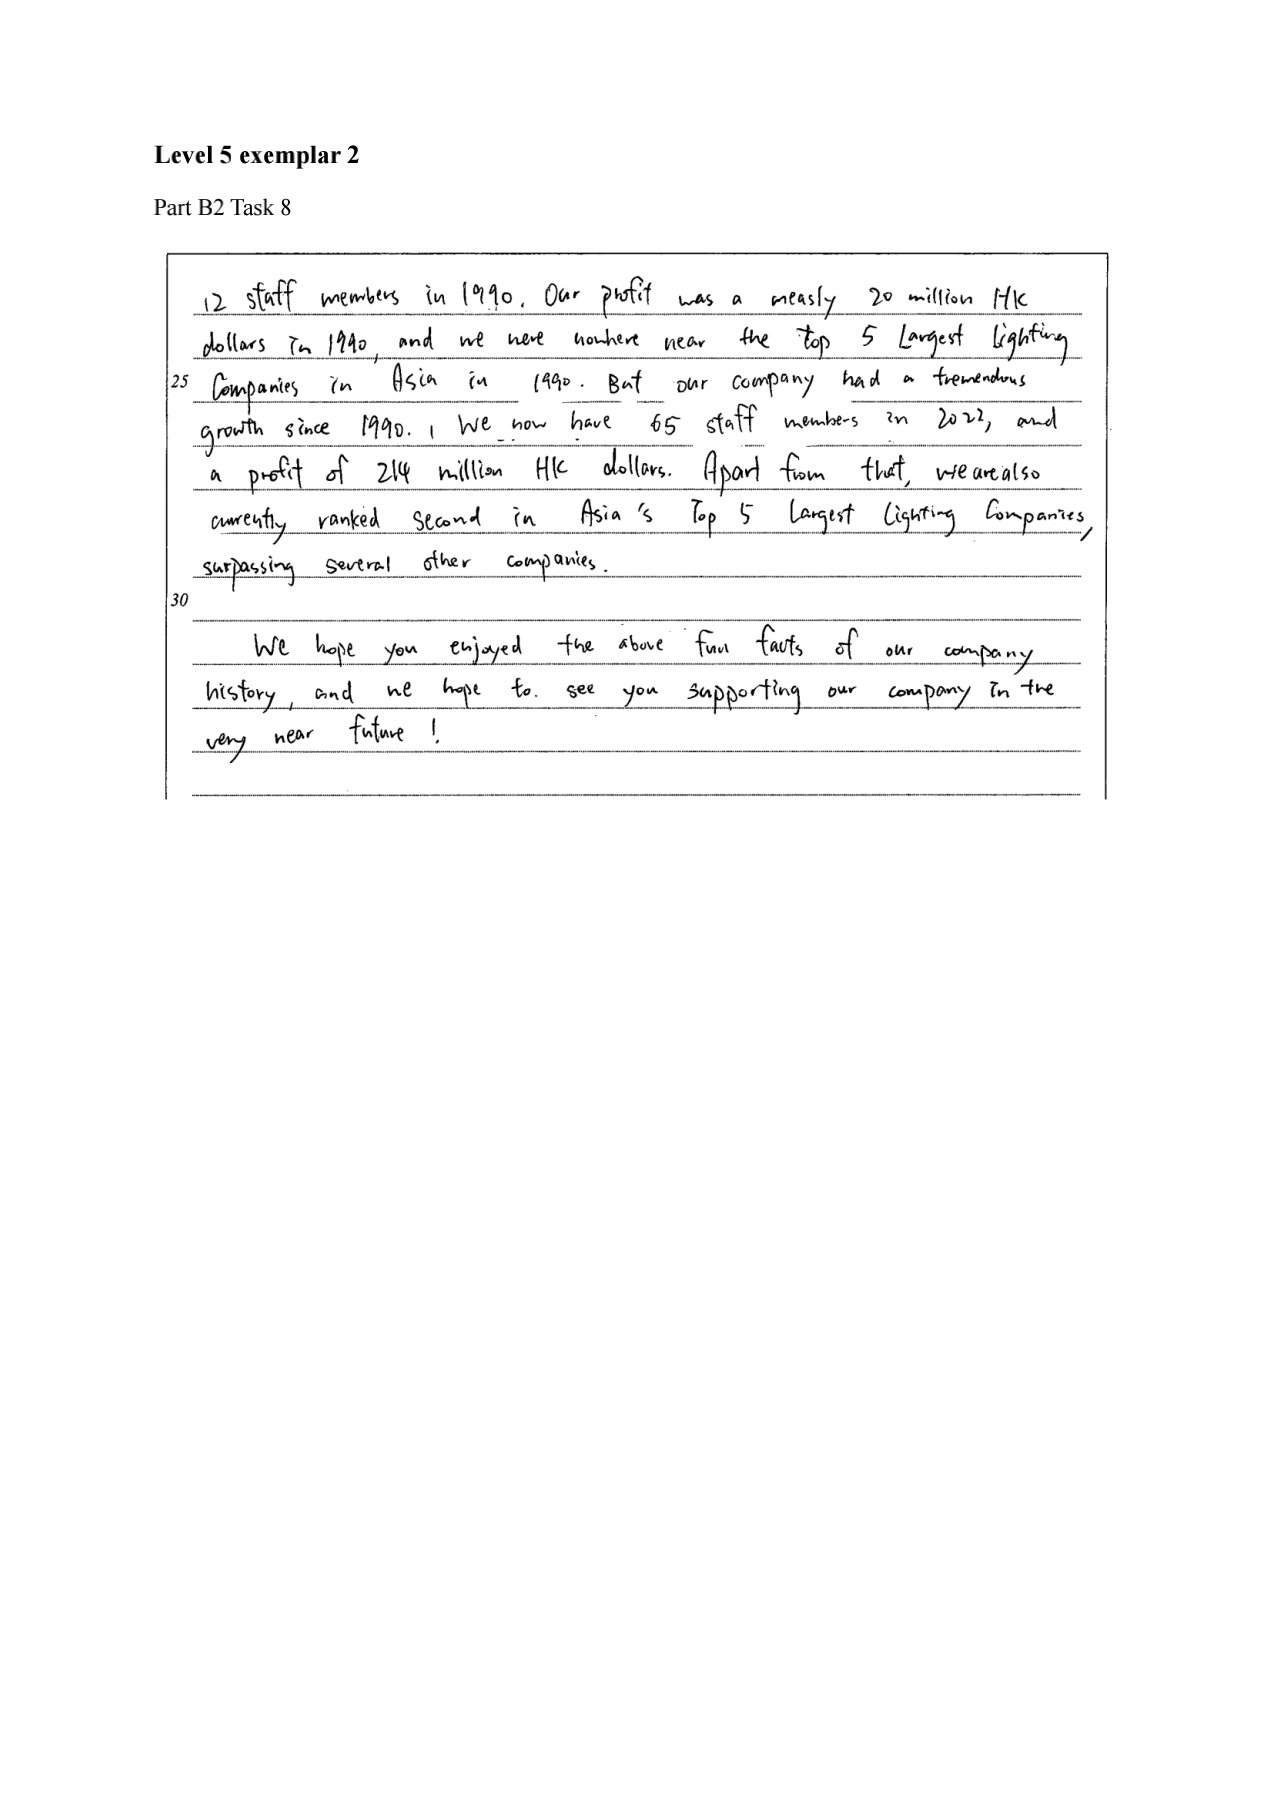 Level 5 exemplar 2
Part B2 Task 8
12 staff members in 1990. Our profit was a measly 20 million HK
dollars in 1990, and we were nowhere near the top 5 Largest Lighting
25 Companies in Asia in 1990. But our company had a tremendous
growth since 1990. We now have 65 staff members in 2022, and
a profit of 214 million HK dollars. Apart from that, we are also
currently ranked second in Asia's Top 5 Largest Lighting Companies,
surpassing several other companies.
30
We hope you enjoyed the above fun facts of our company
history, and we hope to see you supporting our company in the
very near future!